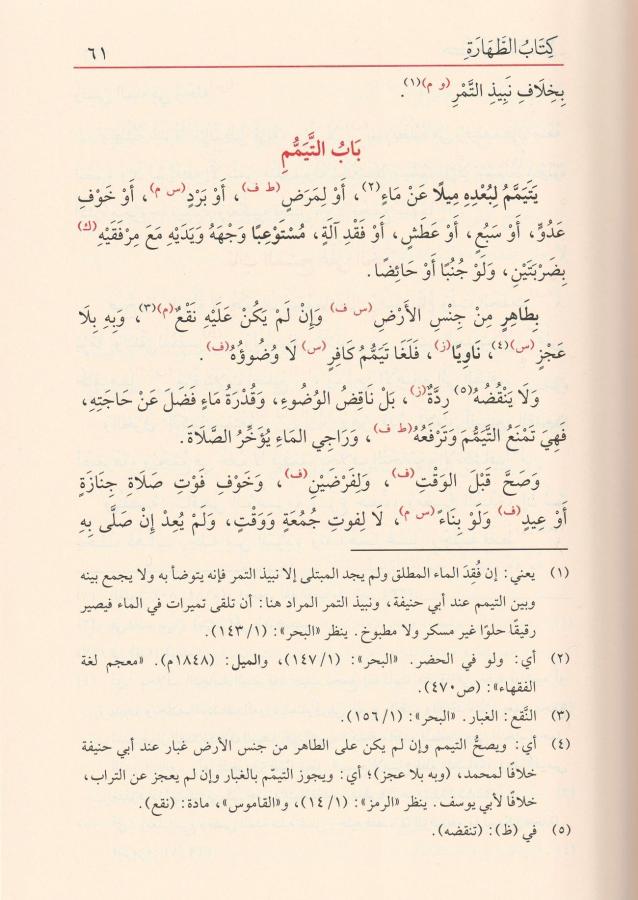 كِتَابُ الطَّهَارَةِ ٦١
بِخِلَافِ نَبِيذِ التَّمْرِ (و م)(١).
بَابُ التَّيَمُّمِ
يَتَيَمَّمُ لِبُعْدِهِ مِيلًا عَنْ مَاءٍ(٢)، أَوْ لِمَرَضٍ(ط ف)، أَوْ بَرْدٍ(س م)، أَوْ خَوْفِ
عَدُوٍّ، أَوْ سَبُعٍ، أَوْ عَطَشٍ، أَوْ فَقْدِ آلَةٍ، مُسْتَوْعِبًا وَجْهَهُ وَيَدَيْهِ مَعَ مِرْفَقَيْهِ(ك)
بِضَرْبَتَيْنِ، وَلَوْ جُنُبًا أَوْ حَائِضًا.
بِطَاهِرٍ مِنْ جِنْسِ الأَرْضِ(س ف) وَإِنْ لَمْ يَكُنْ عَلَيْهِ نَقْعٌ(م)(٣)، وَبِهِ بِلَا
عَجْزٍ(س)(٤)، نَاوِيًا(ز)، فَلَغَا تَيَمُّمُ كَافِرٍ(س) لَا وُضُوؤُهُ(ف).
وَلَا يَنْقُضُهُ(٥) رِدَّةٌ(ز)، بَلْ نَاقِضُ الوُضُوءِ، وَقُدْرَةُ مَاءٍ فَضَلَ عَنْ حَاجَتِهِ،
فَهِيَ تَمْنَعُ التَّيَمُّمَ وَتَرْفَعُهُ(ط ف)، وَرَاجِي المَاءِ يُؤَخِّرُ الصَّلَاةَ.
وَصَحَّ قَبْلَ الوَقْتِ(ف)، وَلِفَرْضَيْنِ(ف)، وَخَوْفِ فَوْتِ صَلَاةِ جِنَازَةٍ
أَوْ عِيدٍ(ف) وَلَوْ بِنَاءً(س م)، لَا لِفوتِ جُمُعَةٍ وَوَقْتٍ، وَلَمْ يُعِدْ إِنْ صَلَّى بِهِ
(١) يعني: إن فُقِدَ الماء المطلق ولم يجد المبتلى إلا نبيذ التمر فإنه يتوضأ به ولا يجمع بينه
وبين التيمم عند أبي حنيفة، ونبيذ التمر المراد هنا: أن تلقى تميرات في الماء فيصير
رقيقًا حلوًا غير مسكر ولا مطبوخ. ينظر «البحر»: (١/ ١٤٣).
(٢) أي: ولو في الحضر. «البحر»: (١/ ١٤٧)، والميل: (١٨٤٨م). «معجم لغة
الفقهاء»: (ص٤٧٠).
(٣) النَّقع: الغبار. «البحر»: (١/ ١٥٦).
(٤) أي: ويصحُّ التيمم وإن لم يكن على الطاهر من جنس الأرض غبار عند أبي حنيفة
خلافًا لمحمد، (وبه بلا عجز)؛ أي: ويجوز التيمّم بالغبار وإن لم يعجز عن التراب،
خلافًا لأبي يوسف. ينظر «الرمز»: (١/ ١٤)، و«القاموس»، مادة: (نقع).
(٥) في (ظ): (تنقضه).